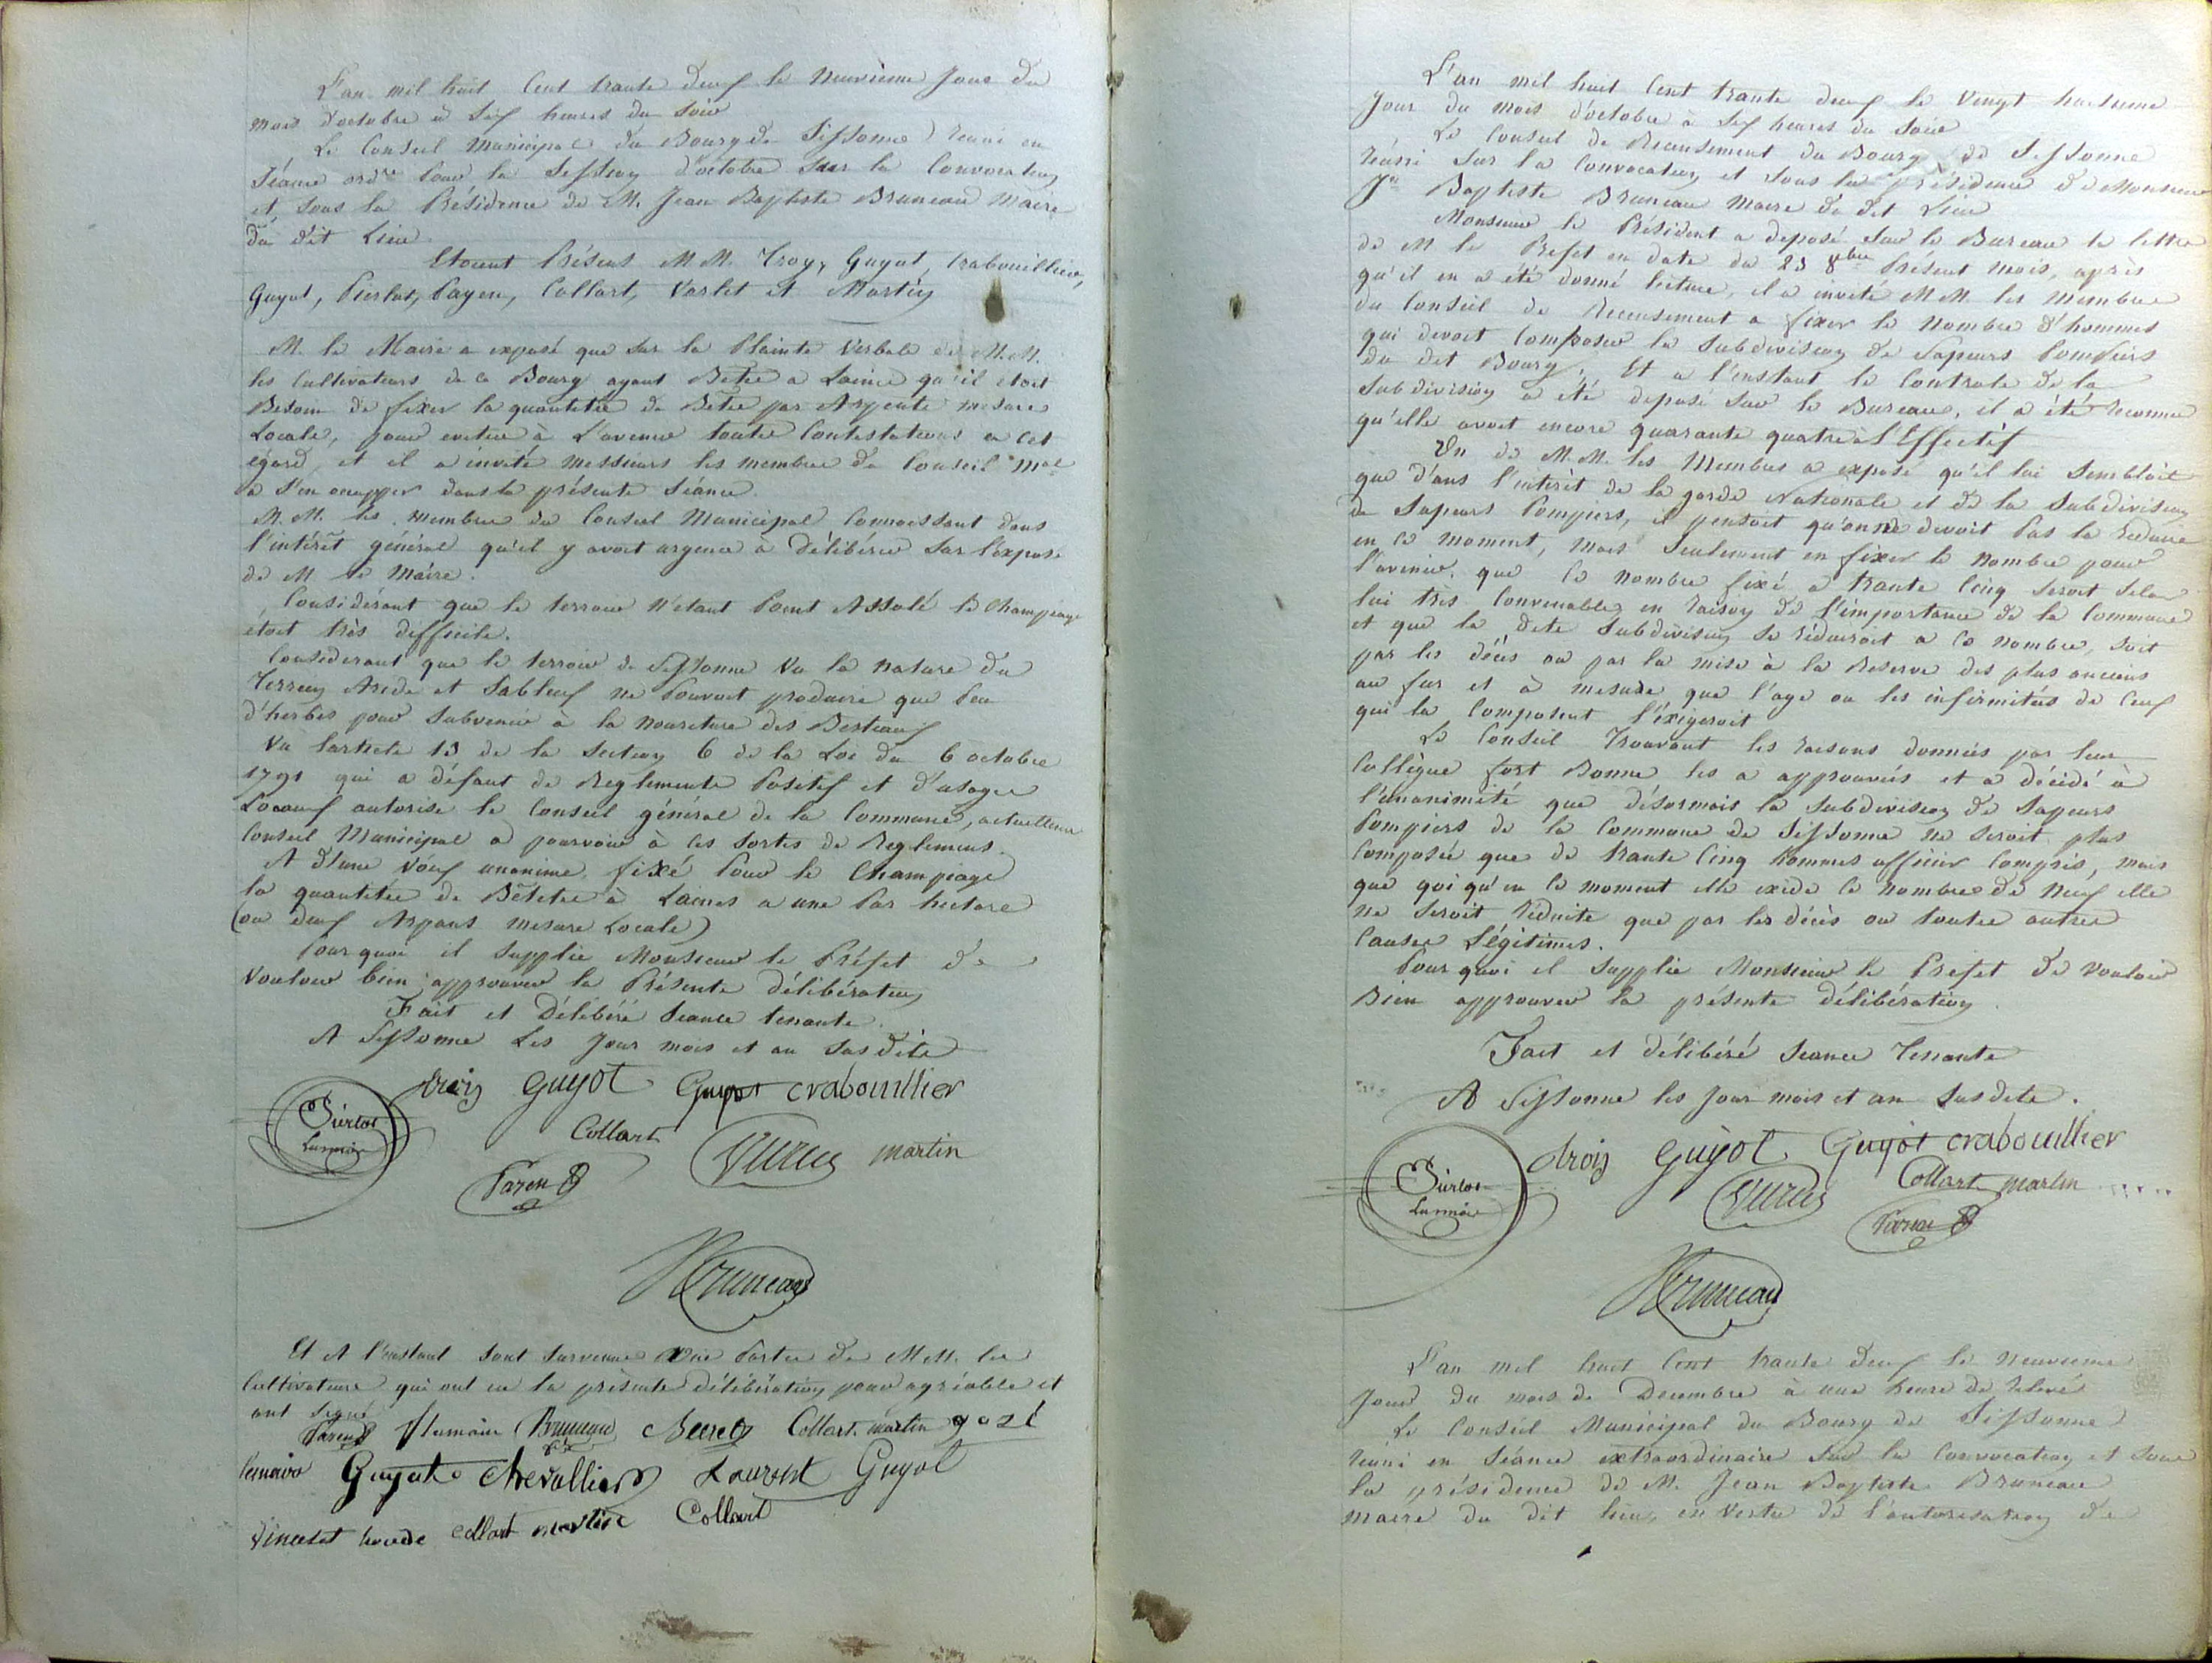 L'an mil huit Cent trante deux le Neuvième Jour du
mois d'octobre à Six heures du Soir
Le Conseil Municipal du Bourg de Sissonne Réuni en
Séance ordre pour la Session d'octobre Sur la Convocation
et sous la Présidence de M. Jean Baptiste Bruneau Maire
du dit Lieu
Etoient Présents M M. Troy, Guyot, Crabouillier,
Guyot, Pierlot, Payen, Collart, Varlet et Martin
M. le Maire a exposé que sur la Plainte Verbale de M. M.
les Cultivateurs de ce Bourg ayant Betes a Laine qu'il étoit
Besoin de fixer la quantitée de Betes par Arpents mesures
Locale, pour eviter à L'avenir toutes Contestations a cet
égard, et il a invité messieurs les membres du Conseil Mal
à S'en occupper dans la présente Séance.
M. M. les membres du Conseil Municipal Connoissant dans
l'intérêt général qu'il y avoit urgence à Délibérer Sur l'exposé
de M le Maire.
Considérant que le terroir n'étant Point Assolé le Champiage
étoit très difficile.
Considerant que le terroir de Sissonne Vu la nature du
Terrein Aride et Sableux ne Pouvoit produire que Peu
d'herbes pour Subvenir à la nouriture des Bestiaux
Vu l'article 13 de la Section 6 de la Loi du 6 octobre
1791 qui a défaut de Reglements Positif et d'usages
Locaux autorise le Conseil général de la Commune, actuellement
Conseil Municipal a pourvoir à ces Sortes de Reglemens.
A d'une Voix unanime fixé Pour le Champiage
la quantitée de Bêtes à Laines a une Par hectare
(ou deux Arpans mesure Locale)
Pourquoi il Supplie Monsieur le Préfet de
Vouloir bien approuver la Présente délibération
Fait et Délibéré Seance tenante
A Sissonne Les Jour mois et an Susdits
Troy Guyot Guyot crabouillier
Pierlot
Lamoire
Collart
martin
Payen
Bruneau
Et A l'instant sont survenus une Partie de MM. les
Cultivateurs qui ont eu la présente délibération pour agréable et
ont signé
Payen Bruneau Collart martin
Guyot chevallier Laurent Guyot
Collart
L'an mil huit Cent trante deux le Vingt huitieme
Jour du mois d'octobre à Six heures du Soir
Le Conseil de Recensement du Bourg de Sissonne
réuni Sur la Convocation et sous la présidence de Monsieur
Jn Baptiste Bruneau Maire du dit Lieu
Monsieur le Président a déposé Sur le Bureau la lettre
de M le Prefet en date du 23 8bre Présent mois, après
qu'il en a été donné lecture, il a invité M M. les membres
du Conseil de Recensement a fixer le nombre d'hommes
qui devoit Composer la Subdivision de Sapeurs Pompiers
du dit Bourg. Et a l'instant le Controle de la
Subdivision a été deposé Sur le Bureau, il a été reconnu
qu'elle avoit encore quarante quatre à l'Effectif
Un de M. M. les Membres a exposé qu'il lui Sembloit
que d'ans l'intérêt de la garde Nationale et de la Subdivision
de Sapeurs Pompiers, il pensoit qu'on ne devoit Pas la Réduire
en ce moment, mais Seulement en fixer le nombre pour
l'avenir, que ce nombre fixé a trante Cinq seroit Selon
lui tres Convenable en raison de l'importance de la Commune
et que la dite Subdivision Se réduiroit a ce nombre, soit
par les décès ou par la mise à la Reserve des plus anciens
au fur et à mesure que l'age ou les infirmités de Ceux
qui la Composent l'éxigeroit
Le Conseil Trouvant les raisons données par leur
Collègue fort Bonne les a approuvées et a décidé à
l'unanimité que désormais la Subdivision de Sapeurs
Pompiers de la Commune de Sissonne ne seroit plus
Composée que de trante Cinq hommes officier Compris, mais
que quoi qu'en ce moment elle exède ce nombre de Neuf elle
ne Seroit réduite que par les décès ou toutes autres
Causes Légitimes.
Pour quoi il Supplie Monsieur le Prefet de vouloir
Bien approuver la présente délibération
Fait et délibéré Seance Tenante
A Sissonne les Jour mois et an Susdits.
Troy Guyot Guyot crabouillier
Pierlot
Lamoire
Collart martin
Payen
Bruneau
L'an mil huit Cent trante deux le neuvieme
Jour du mois de Decembre à une heure de relevé
Le Conseil Municipal du Bourg de Sissonne
réuni en Séance extraordinaire Sur la Convocation et sous
la présidence de M. Jean Baptiste Bruneau
maire du dit lieu, en Vertu de l'autorisation de